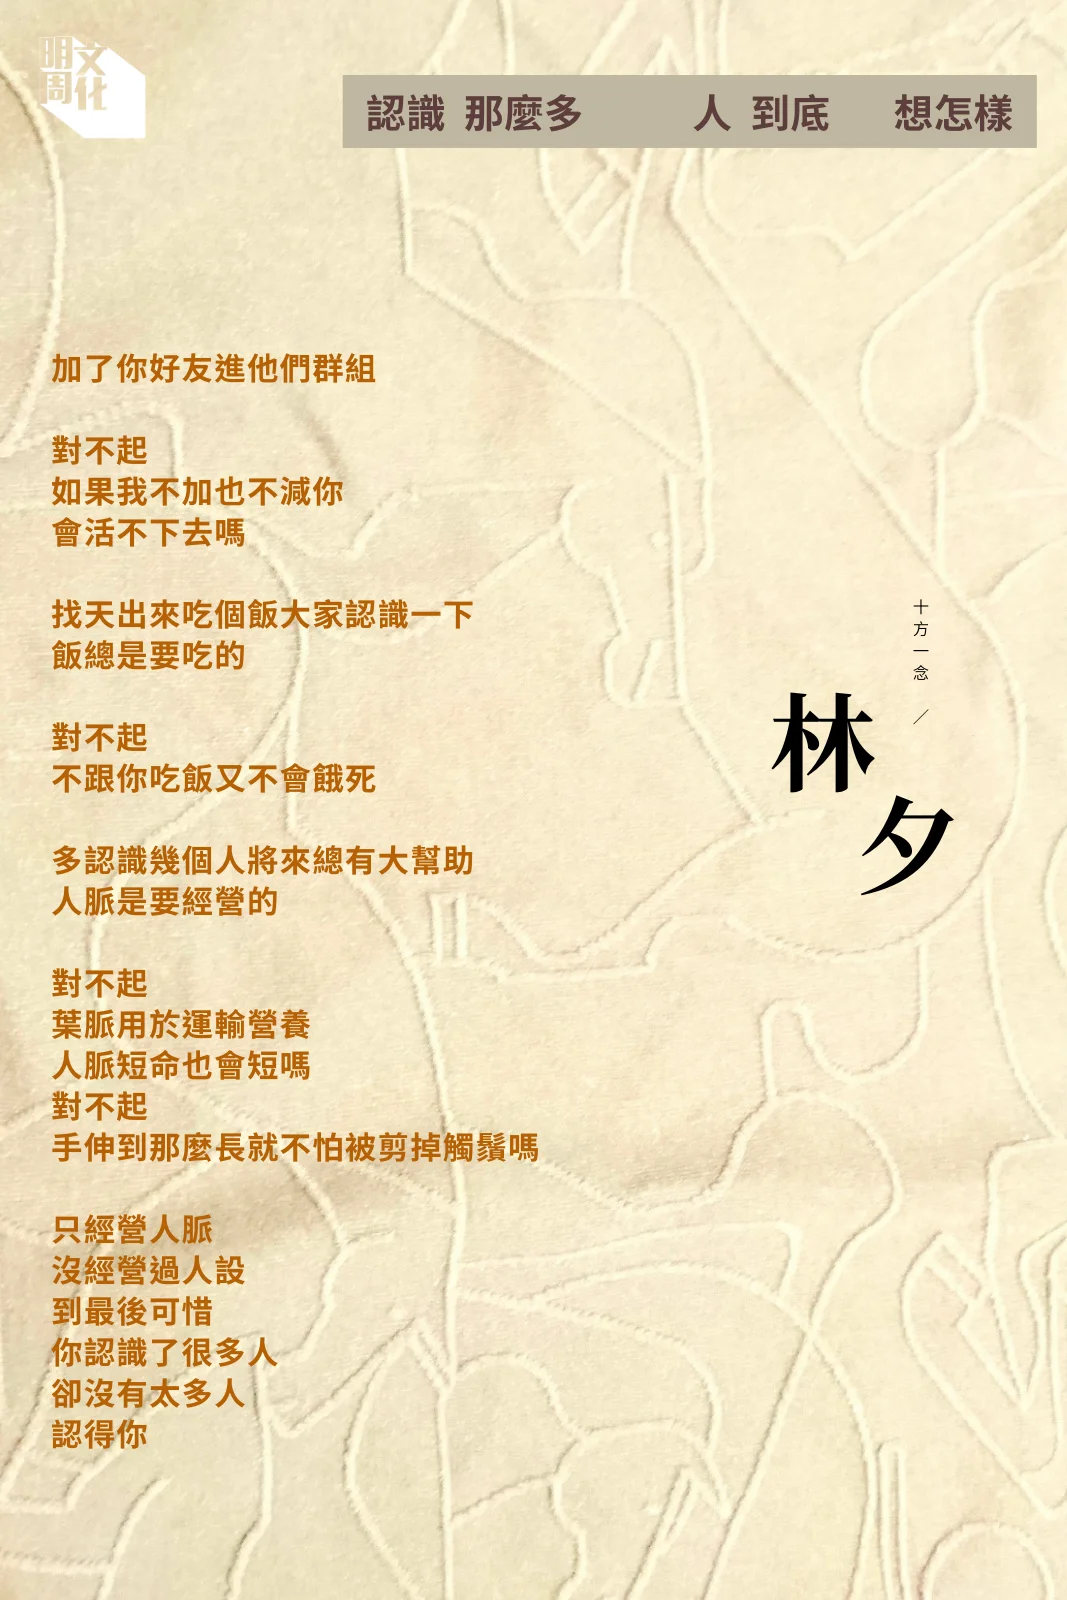 明周文化
認識 那麼多 人 到底 想怎樣
加了你好友進他們群組
對不起
如果我不加也不減你
會活不下去嗎
找天出來吃個飯大家認識一下
飯總是要吃的
對不起
不跟你吃飯又不會餓死
多認識幾個人將來總有大幫助
人脈是要經營的
對不起
葉脈用於運輸營養
人脈短命也會短嗎
對不起
手伸到那麼長就不怕被剪掉觸鬚嗎
只經營人脈
沒經營過人設
到最後可惜
你認識了很多人
卻沒有太多人
認得你
十方一念 ／
林夕